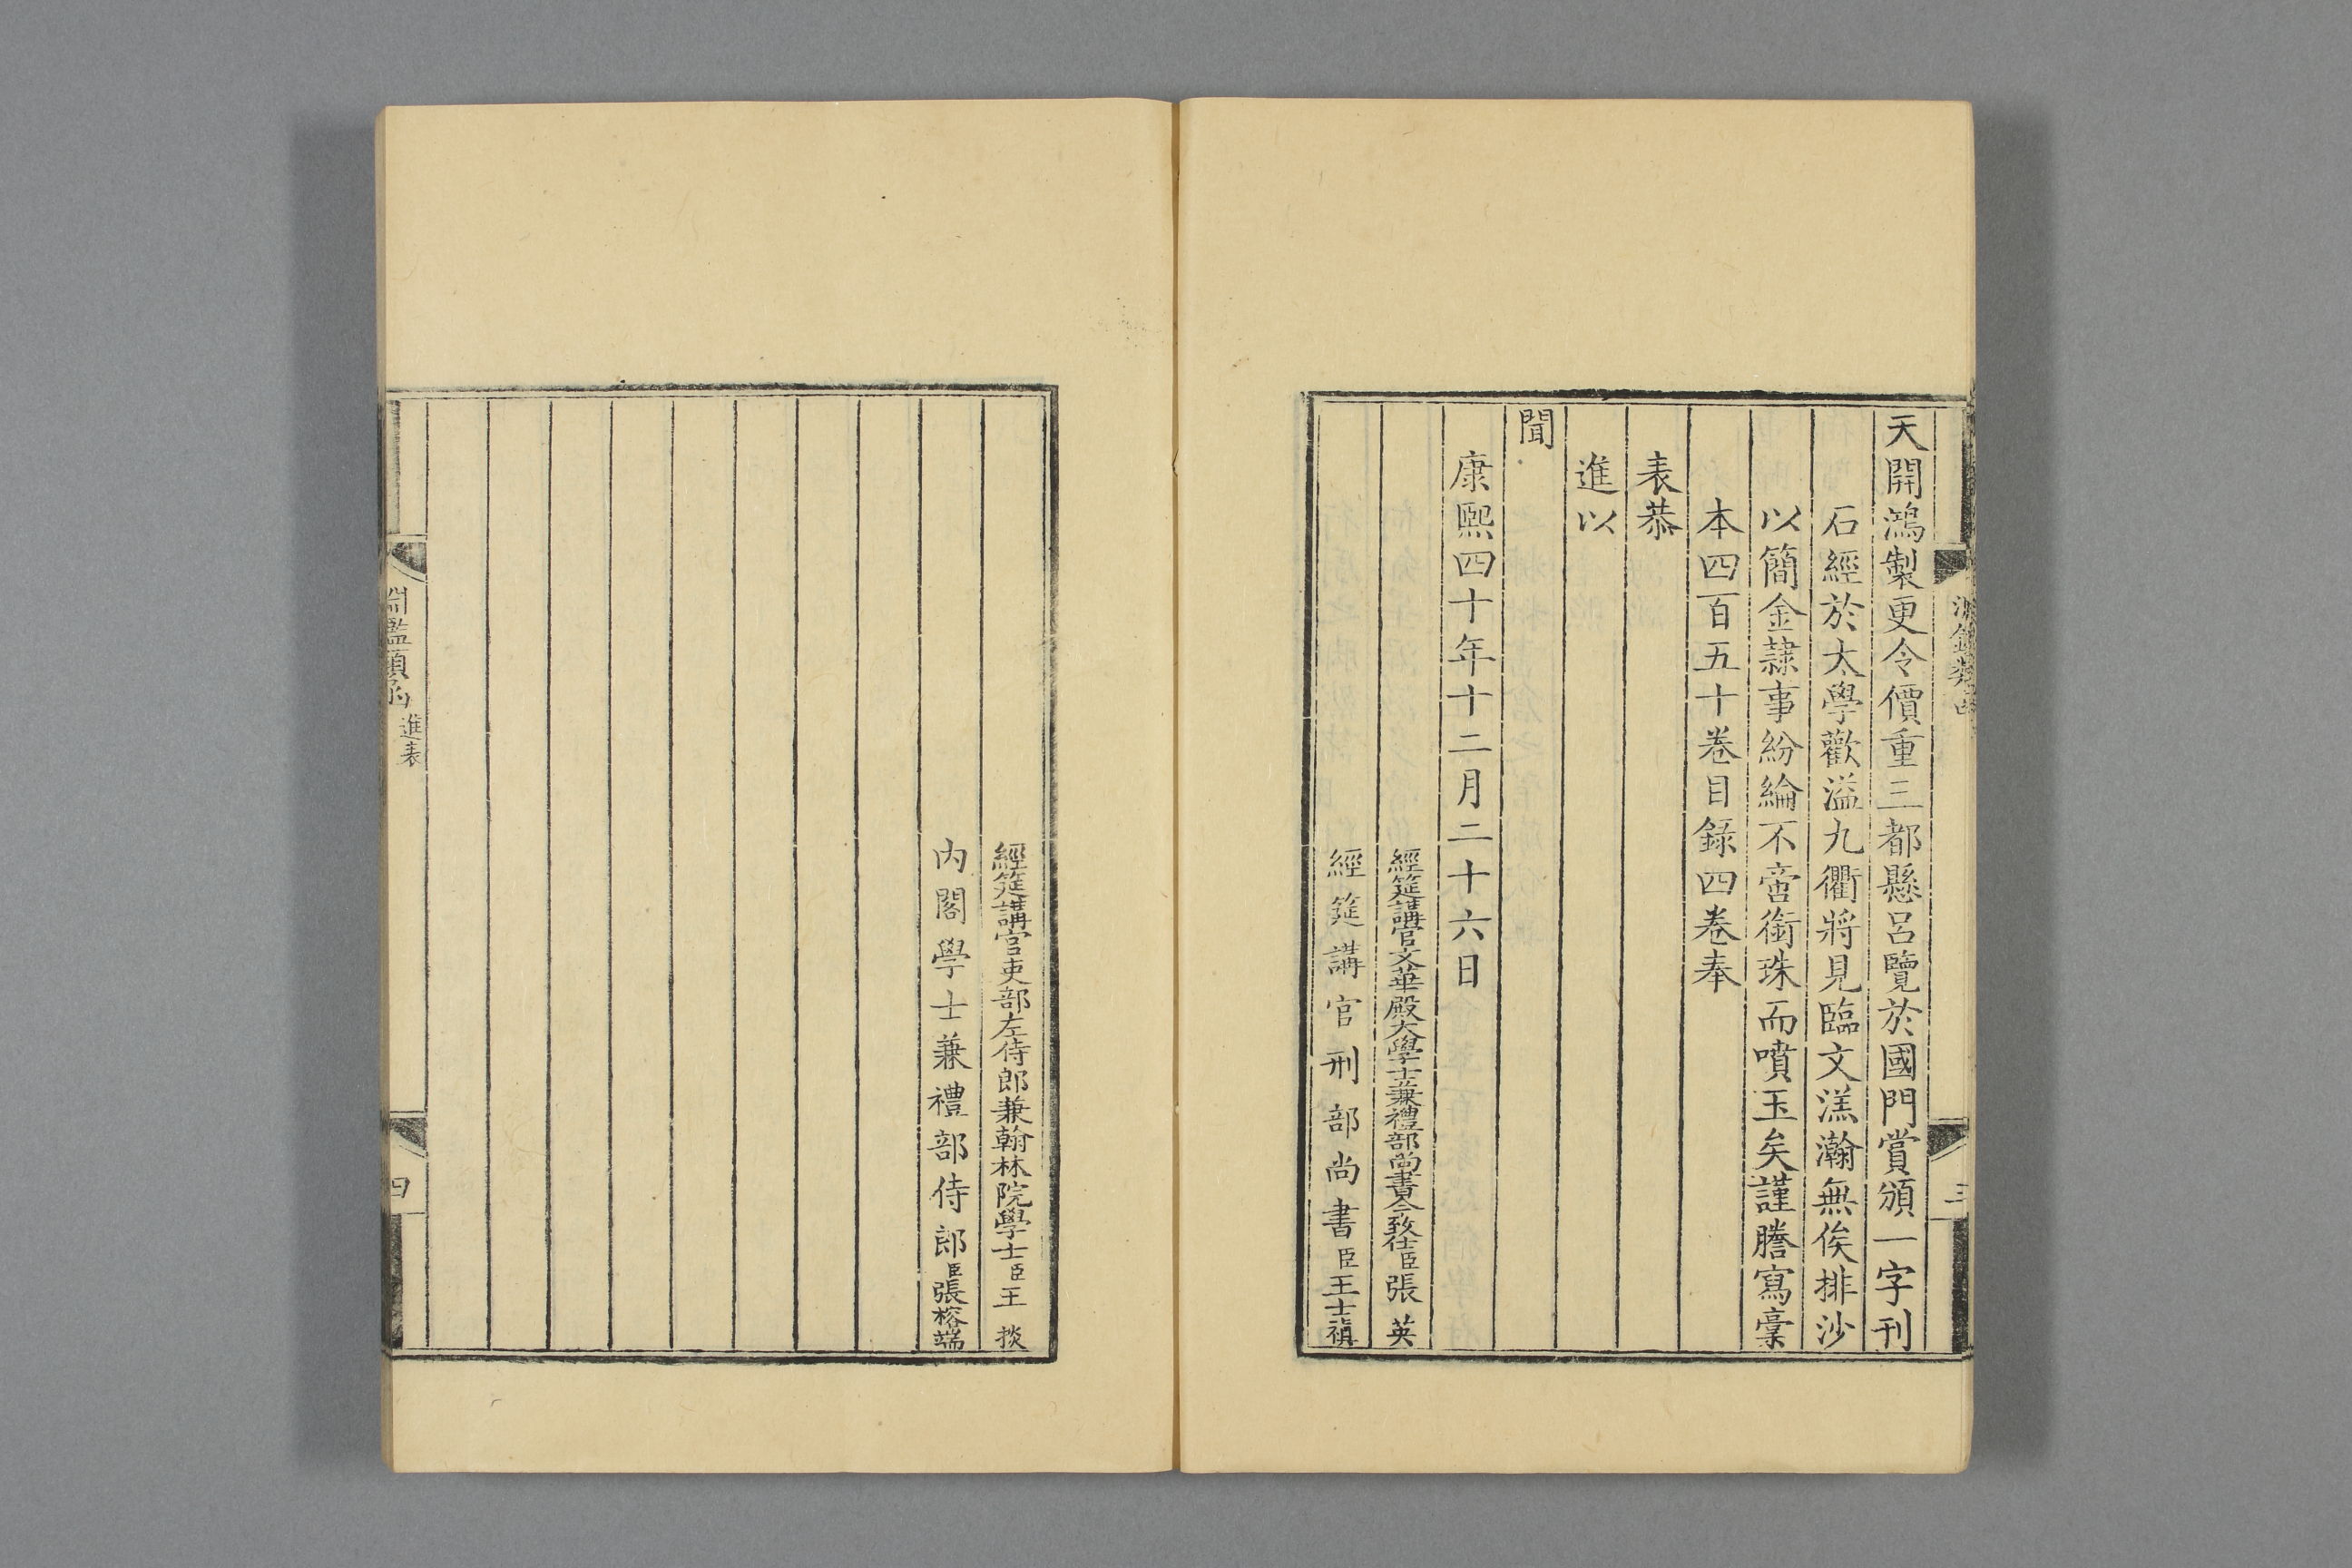 天開鴻製更令價重三都懸呂覽於國門賞頒一字刊
石經於太學歡溢九衢將見臨文渼瀚無俟排沙
以簡金隷事紛綸不啻銜珠而噴玉矣謹謄寫稾
本四百五十卷目錄四卷奉
表恭
進以
聞
康熙四十年十二月二十六日
經筵講官文華殿大學士兼禮部尚書今致仕臣張英
經筵講官刑部尚書臣王士禛
三
經筵講官吏部左侍郎兼翰林院學士臣王掞
內閣學士兼禮部侍郎臣張榕端
淵鑑類函 進表
四